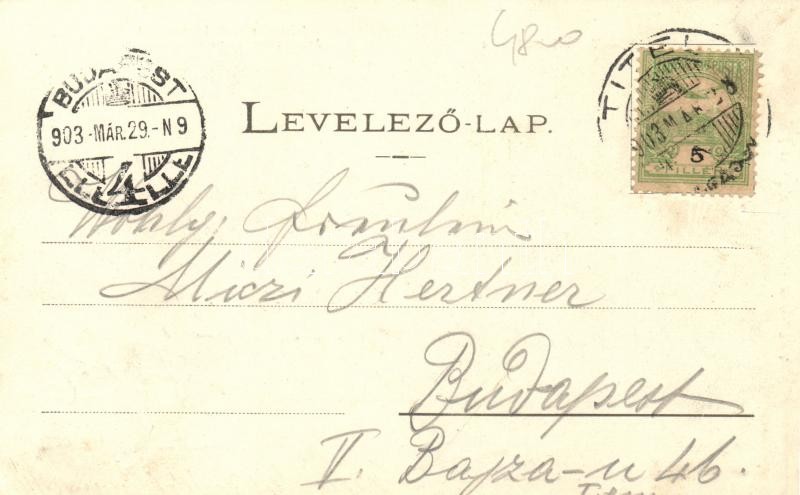 4800
BUDAPEST
903 - MÁR. 29. - N 9
4
TITEL
903 MÁR
5
FILLÉR
LEVELEZŐ-LAP.
Wohlg. Fräulein
Miczi Hertner
Budapest
V. Bajza-u 46.